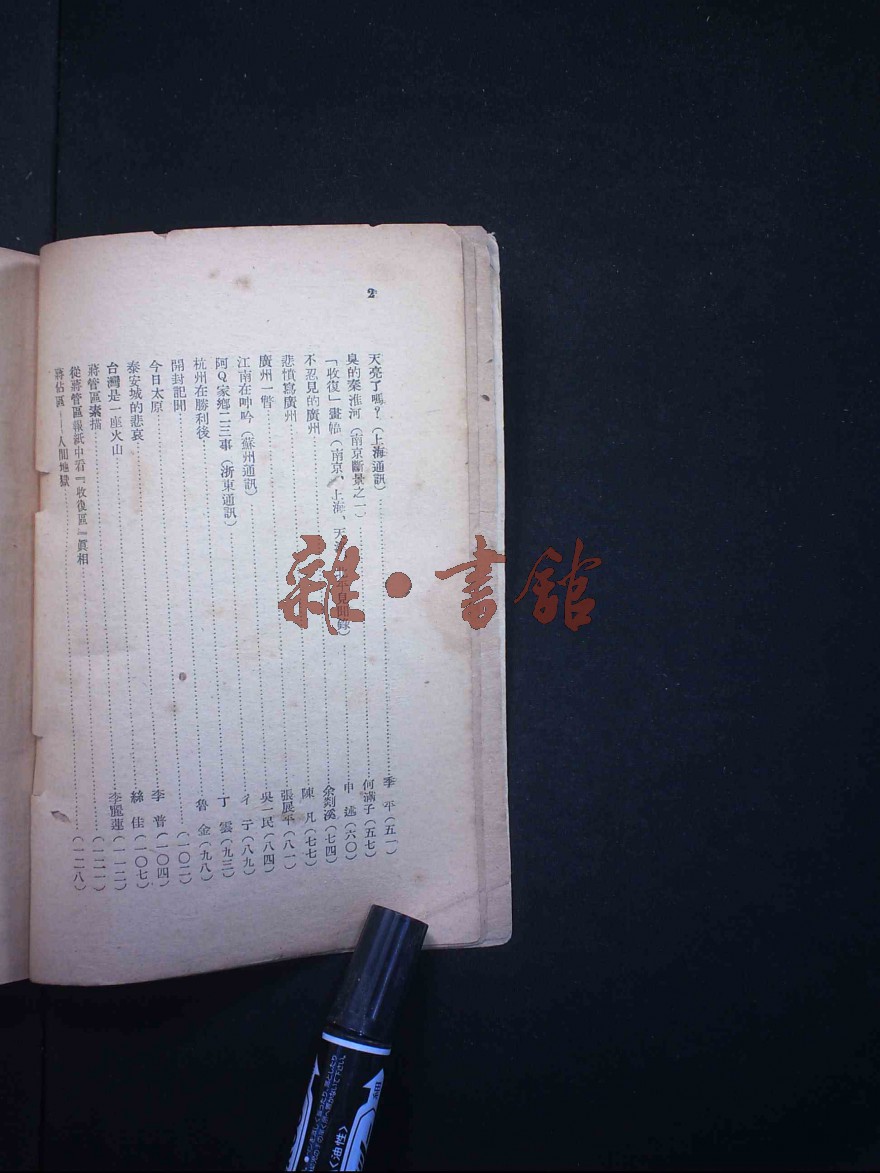 2
天亮了嗎?(上海通訊)……季 平(五一)
臭的秦淮河(南京斷景之一)……何滿子(五七)
「收復」畫帖(南京、上海、天 見聞錄)……申 述(六〇)
不忍見的廣州……余剡溪(七四)
悲憤寫廣州……陳 凡(七七)
廣州一瞥……張展平(八一)
江南在呻吟(蘇州通訊)……吳一民(八四)
阿Q家鄉二三事(浙東通訊)……彳 亍(八九)
杭州在勝利後……丁 雲(九三)
開封記聞……魯 金(九八)
今日太原……(一〇二)
泰安城的悲哀……李 普(一〇四)
台灣是一座火山……絲 佳(一〇七)
蔣管區素描……李麗蓮(一一二)
從蔣管區報紙中看『收復區』眞相……(一二一)
蔣佔區——人間地獄……(一二八)
雜·書館